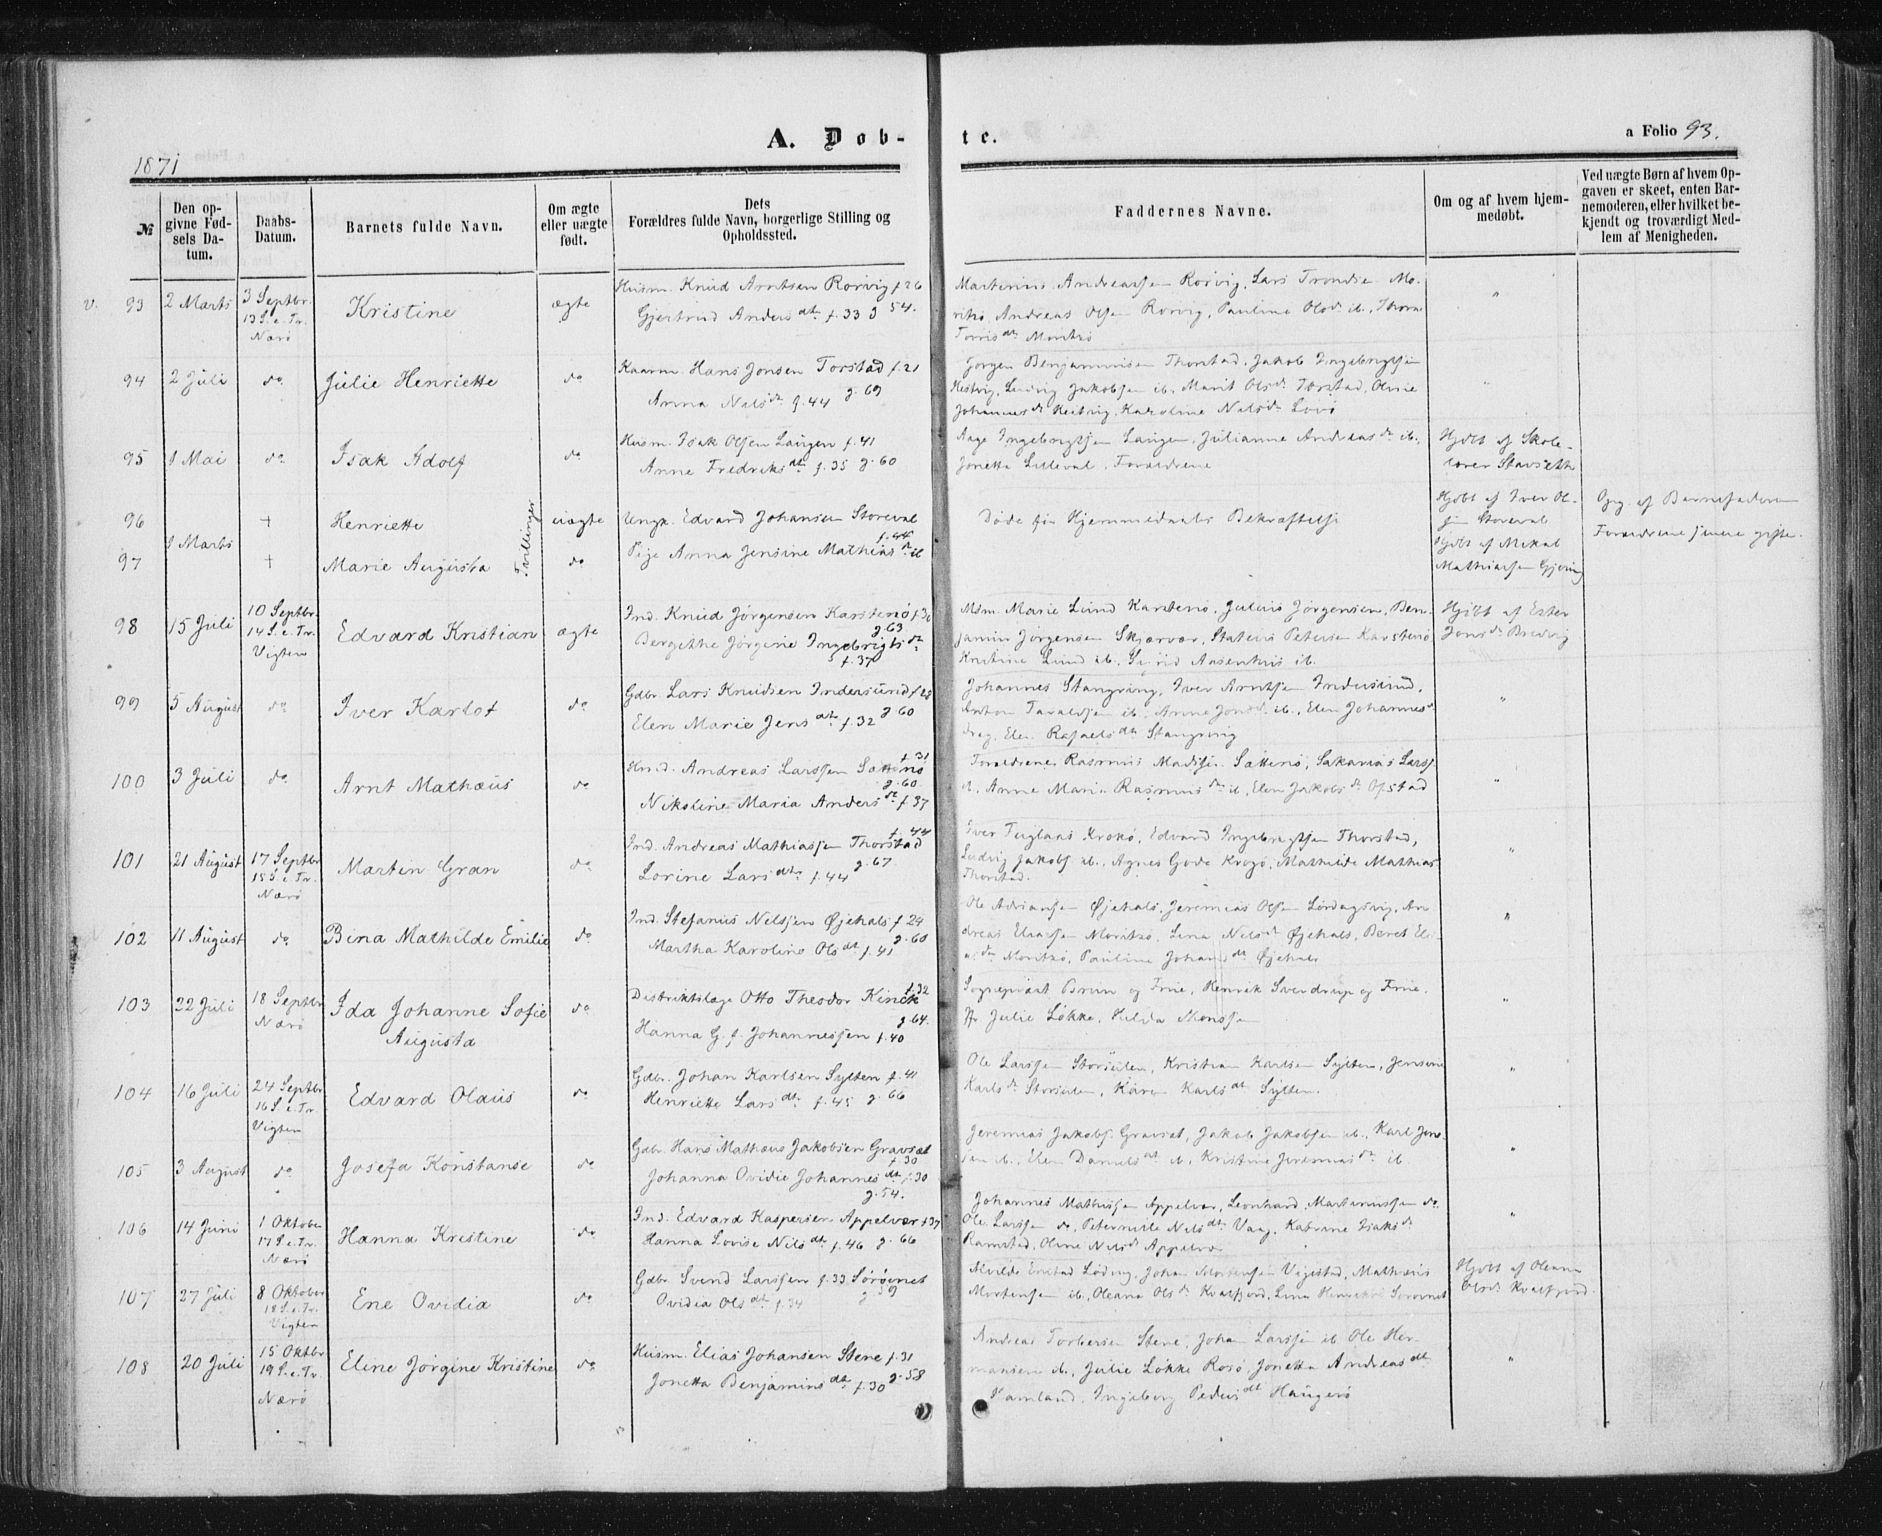 1871
A. Døb-
te.
a Folio 93.
№
Den op-
givne Fød-
sels Da-
tum.
Daabs-
Datum.
Barnets fulde Navn.
Om ægte
eller uægte
født.
Dets
Forældres fulde Navn, borgerlige Stilling og
Opholdssted.
Faddernes Navne.
Om og af hvem hjem-
medøbt.
Ved uægte Børn af hvem Op-
gaven er skeet, enten Bar-
nemoderen, eller hvilket be-
kjendt og troværdigt Med-
lem af Menigheden.
v. 93 2 Marts 3 Septbr.
13 S. e. Tr.
Nærø
Kristine
ægte
Husm. Knud Arntsen Rørvig f. 26
Gjertrud Andersdt. f. 33 g 54.
Martinus Andreassen Rørvig, Lars Trondse Mo-
ritsø, Andreas Olsen Rørvig, Pauline Olsdt. ib.,
Moritsø
"
94 2 Juli do
Julie Henriette
do
Kaarm. Hans Jonsen Torstad f. 21
Anna Nilsdt. f. 44 g. 69
Jørgen Benjaminsen Thorstad, Jakob Ingebrigtsen
Ludvig Jakobsen ib., Marit Olsdt. Torstad, Oline
Johannesdt. Karoline Nilsdt. Lovø
"
95 9 Mai do
Isak Adolf
do
Husm. Isak Olsen Laugen f. 41
Anne Fredriksdt. f. 35 g. 60
Aage Ingebrigtsen Laugen, Julianne Andreasdt. ib.,
Jonetta Lilleval, Forældrene
Hjdbt af Skole-
lærer Stavseth
96 9 Marts †
Henriette
Tvillinger
uægte
Ungk. Edvard Johansen Storeval
f. 44
Døde før Hjemmedaabs Bekræftelse
Hjdbt af Iver Ol-
sen Storeval
Opg. af Barnefaderen
Forældrene senere gifte.
97 †
Marie Augusta
do
Pige Anna Jensine Mathiasdt. ib
Hjdbt af Mikal
Mathiassen Gjering
98 15 Juli 10 Septbr.
14 S. e. Tr.
Vigten
Edvard Kristian
ægte
Ind. Knud Jørgensen Karstenø f. 30
g. 63
Bergitthe Jørgine Ingebrigtsdt.
f. 37
Msm. Marie Lund Karstenø, Julius Jørgensen, Ben-
jamin Jørgensen Skjærvær, Statius Petersen Karstenø
Kristine Lund ib. Sigrid Aasenhus ib.
Hjdbt af Ester
Jonsdt. Bredvig
99 5 August do
Iver Karlot
do
Gdbr. Lars Knudsen Indersund f. 28
Elen Marie Jensdt. f. 32 g. 60
Johannes Stangring, Iver Arntsen Indersund,
Anton ib., Anne Jonsdt. ib., Elen Johannesdt.
ib., Elen Rafaelsdt. Stangring
"
100 3 Juli do
Arnt Mathæus
do
f. 31
Husmd. Andreas Larssen Sættenø
g. 60
Nikoline Maria Andersdt. f. 37
Forældrene, Rasmus Madsen Sættenø, Sakarias Larss.
ib., Anne Maria Rasmusdt. ib., Elen Jakobsdt. Ofstad
"
101 21 August 17 Septbr
15 S. e. Tr.
Nærø
Martin Gran
do
f. 44
Ind. Andreas Mathiassen Thorstad
Lorine Larsdt. f. 44 g. 67.
Iver Kroks, Edvard Ingebrigtsen Thorstad,
Ludvig Jakobs. ib., Agnes Krogø, Mathilde Mathias
Thorstad.
"
102 11 August do
Bina Mathilde Emilie
do
Ind. Stefanus Nilssen Øjehals f. 24
Martha Karoline Olsdt. f. 41 g. 60
Ole Adriansen Øjehals, Jeremias Olsen Lørdagsvig, An-
dreas Eliassen Moritsø, Lina Nilsdt. Øjehals, Beret Eli-
asdt. Moritsø, Pauline Johansdt. Øjehals
"
103 22 Juli 18 Septbr
Nærø
Ida Johanne Sofie
Augusta
do
f. 32
Distriktslæge Otto Theodor Kinck
g. 64.
Hanna G. f. Johannessen f. 40
Sogneprest Brun og Frue, Henrik Sverdrup og Frue,
Julie Løkke, Hilda
"
104 16 Juli 24 Septbr
16 S. e. Tr
Vigten
Edvard Olaus
do
Gdbr. Johan Karlsen Sylten f. 41
Henriette Larsdt. f. 45 g. 66
Ole Larssen Storsulen, Kristian Karlsen Sylten, Jensine
Karlsdt. Storsulen, Karen Karlsdt. Sylten.
"
105 3 August do
Josefa Konstanse
do
Gdbr. Hans Mathæus Jakobsen Gravsæt
f. 30
Johanna Ovidie Johannesdt. f. 30
g. 54.
Jeremias Jakobs. Gravset, Jakob Jakobsen ib., Karl Jon-
sen ib., Elen Danielsdt. ib., Kristine Jeremiasdt. ib.
"
106 14 Juni 1 Oktober
17 S. e. Tr.
Nærø
Hanna Kristine
do
Ind. Edvard Kaspersen Appelvær f. 37
Hanna Lovise Nilsdt. f. 46 g. 66
Johannes Mathissen Appelvær, Leonhard Martinussen do.
Ole Larssen do, Peternille Nilsdt. Vaag, Katrine Isaksdt.
Ramstad, Oline Nilsdt. Appelvær
"
107 27 Juli 8 Oktober
18 S. e. Tr.
Vigten
Ene Ovidia
do
Gdbr. Svend Larssen f. 33 Sørøvnet
Ovidia Olsdt. f. 34 g 59
Alvilde Løding, Johan Mortensen Vigestad, Mathæus
Mortensen ib., Oleana Olsdt. Kvalfjord, Lina Sørøvnet
Hjdbt af Oleana
Olsdt. Kvalfjord.
108 20 Juli 15 Oktbr
19 S. e. Tr.
Nærø
Eline Jørgine Kristine
do
Husm. Elias Johansen Stene f. 31
Jonetta Benjaminsdt. f. 30 g. 58
Andreas Torbersen Stene, Johan Larssen ib. Ole Her-
mansen ib., Julie Løkke Rosø, Jonetta Andreasdt.
Ramland, Ingeborg Pedersdt. Haugerø
"